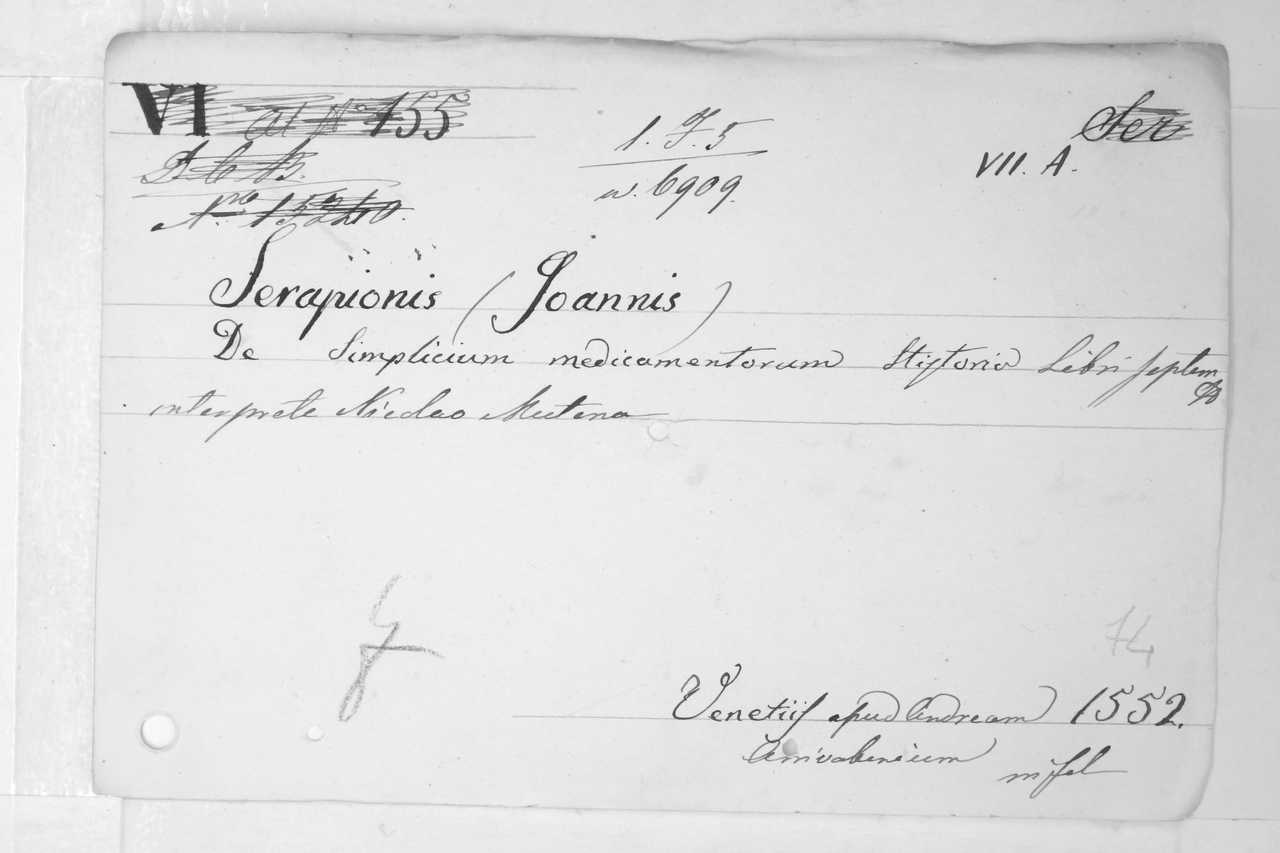 VI At No 155
Ser
1. F. 5
VII. A.
w. 6909.
Nro 15240.
Serapionis (Joannis)
De Simplicium medicamentorum Historia Libri septem
interprete Nicolao Mutono
74
Venetiis apud Andream 1552.
Arrivabenium